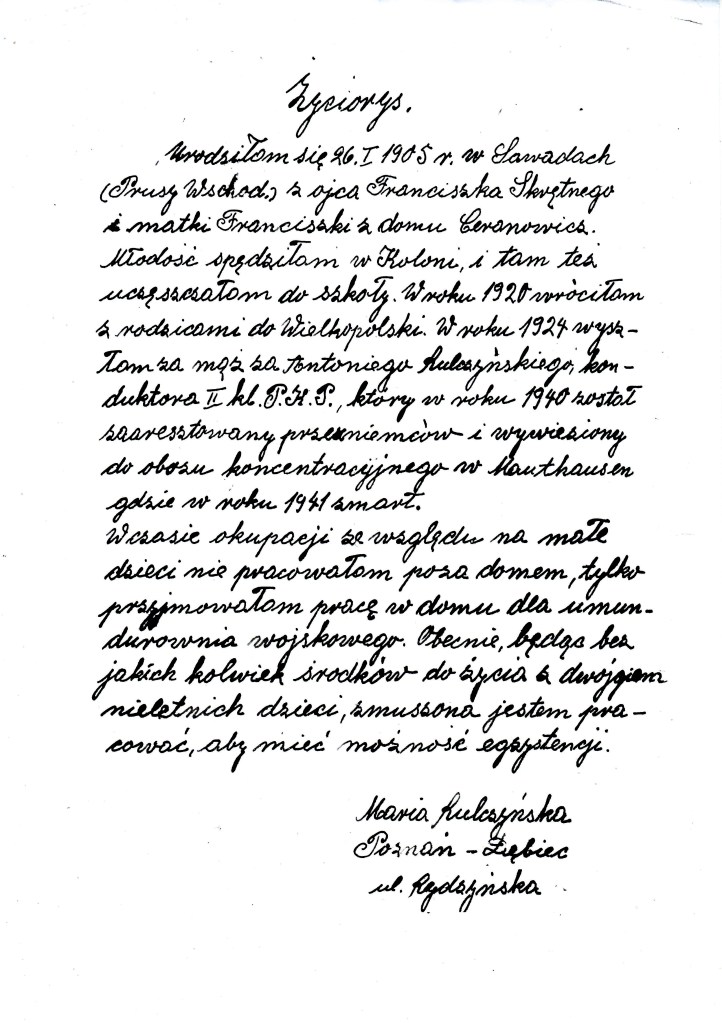 Życiorys.
Urodziłam się 26. I 1905 r. w Sawadach
(Prusy Wschod.) z ojca Franciszka Skrętnego
i matki Franciszki z domu Ceranowicz.
Młodość spędziłam w Koloni, i tam też
uczęszczałam do szkoły. W roku 1920 wróciłam
z rodzicami do Wielkopolski. W roku 1924 wysz-
łam za mąż za Antoniego Kulczyńskiego, kon-
duktora II kl. P.K.P., który w roku 1940 został
zaaresztowany przez niemców i wywieziony
do obozu koncentracyjnego w Mauthausen
gdzie w roku 1941 zmarł.
Wczasie okupacji ze względu na małe
dzieci nie pracowałam poza domem, tylko
przyjmowałam pracę w domu dla umun-
durownia wojskowego. Obecnie, będąc bez
jakich kolwiek środków do życia z dwójgiem
nieletnich dzieci, zmuszona jestem pra-
cować, aby mieć możność egzystencji.
Maria Kulczyńska
Poznań - Dębiec
ul. Rydzyńska